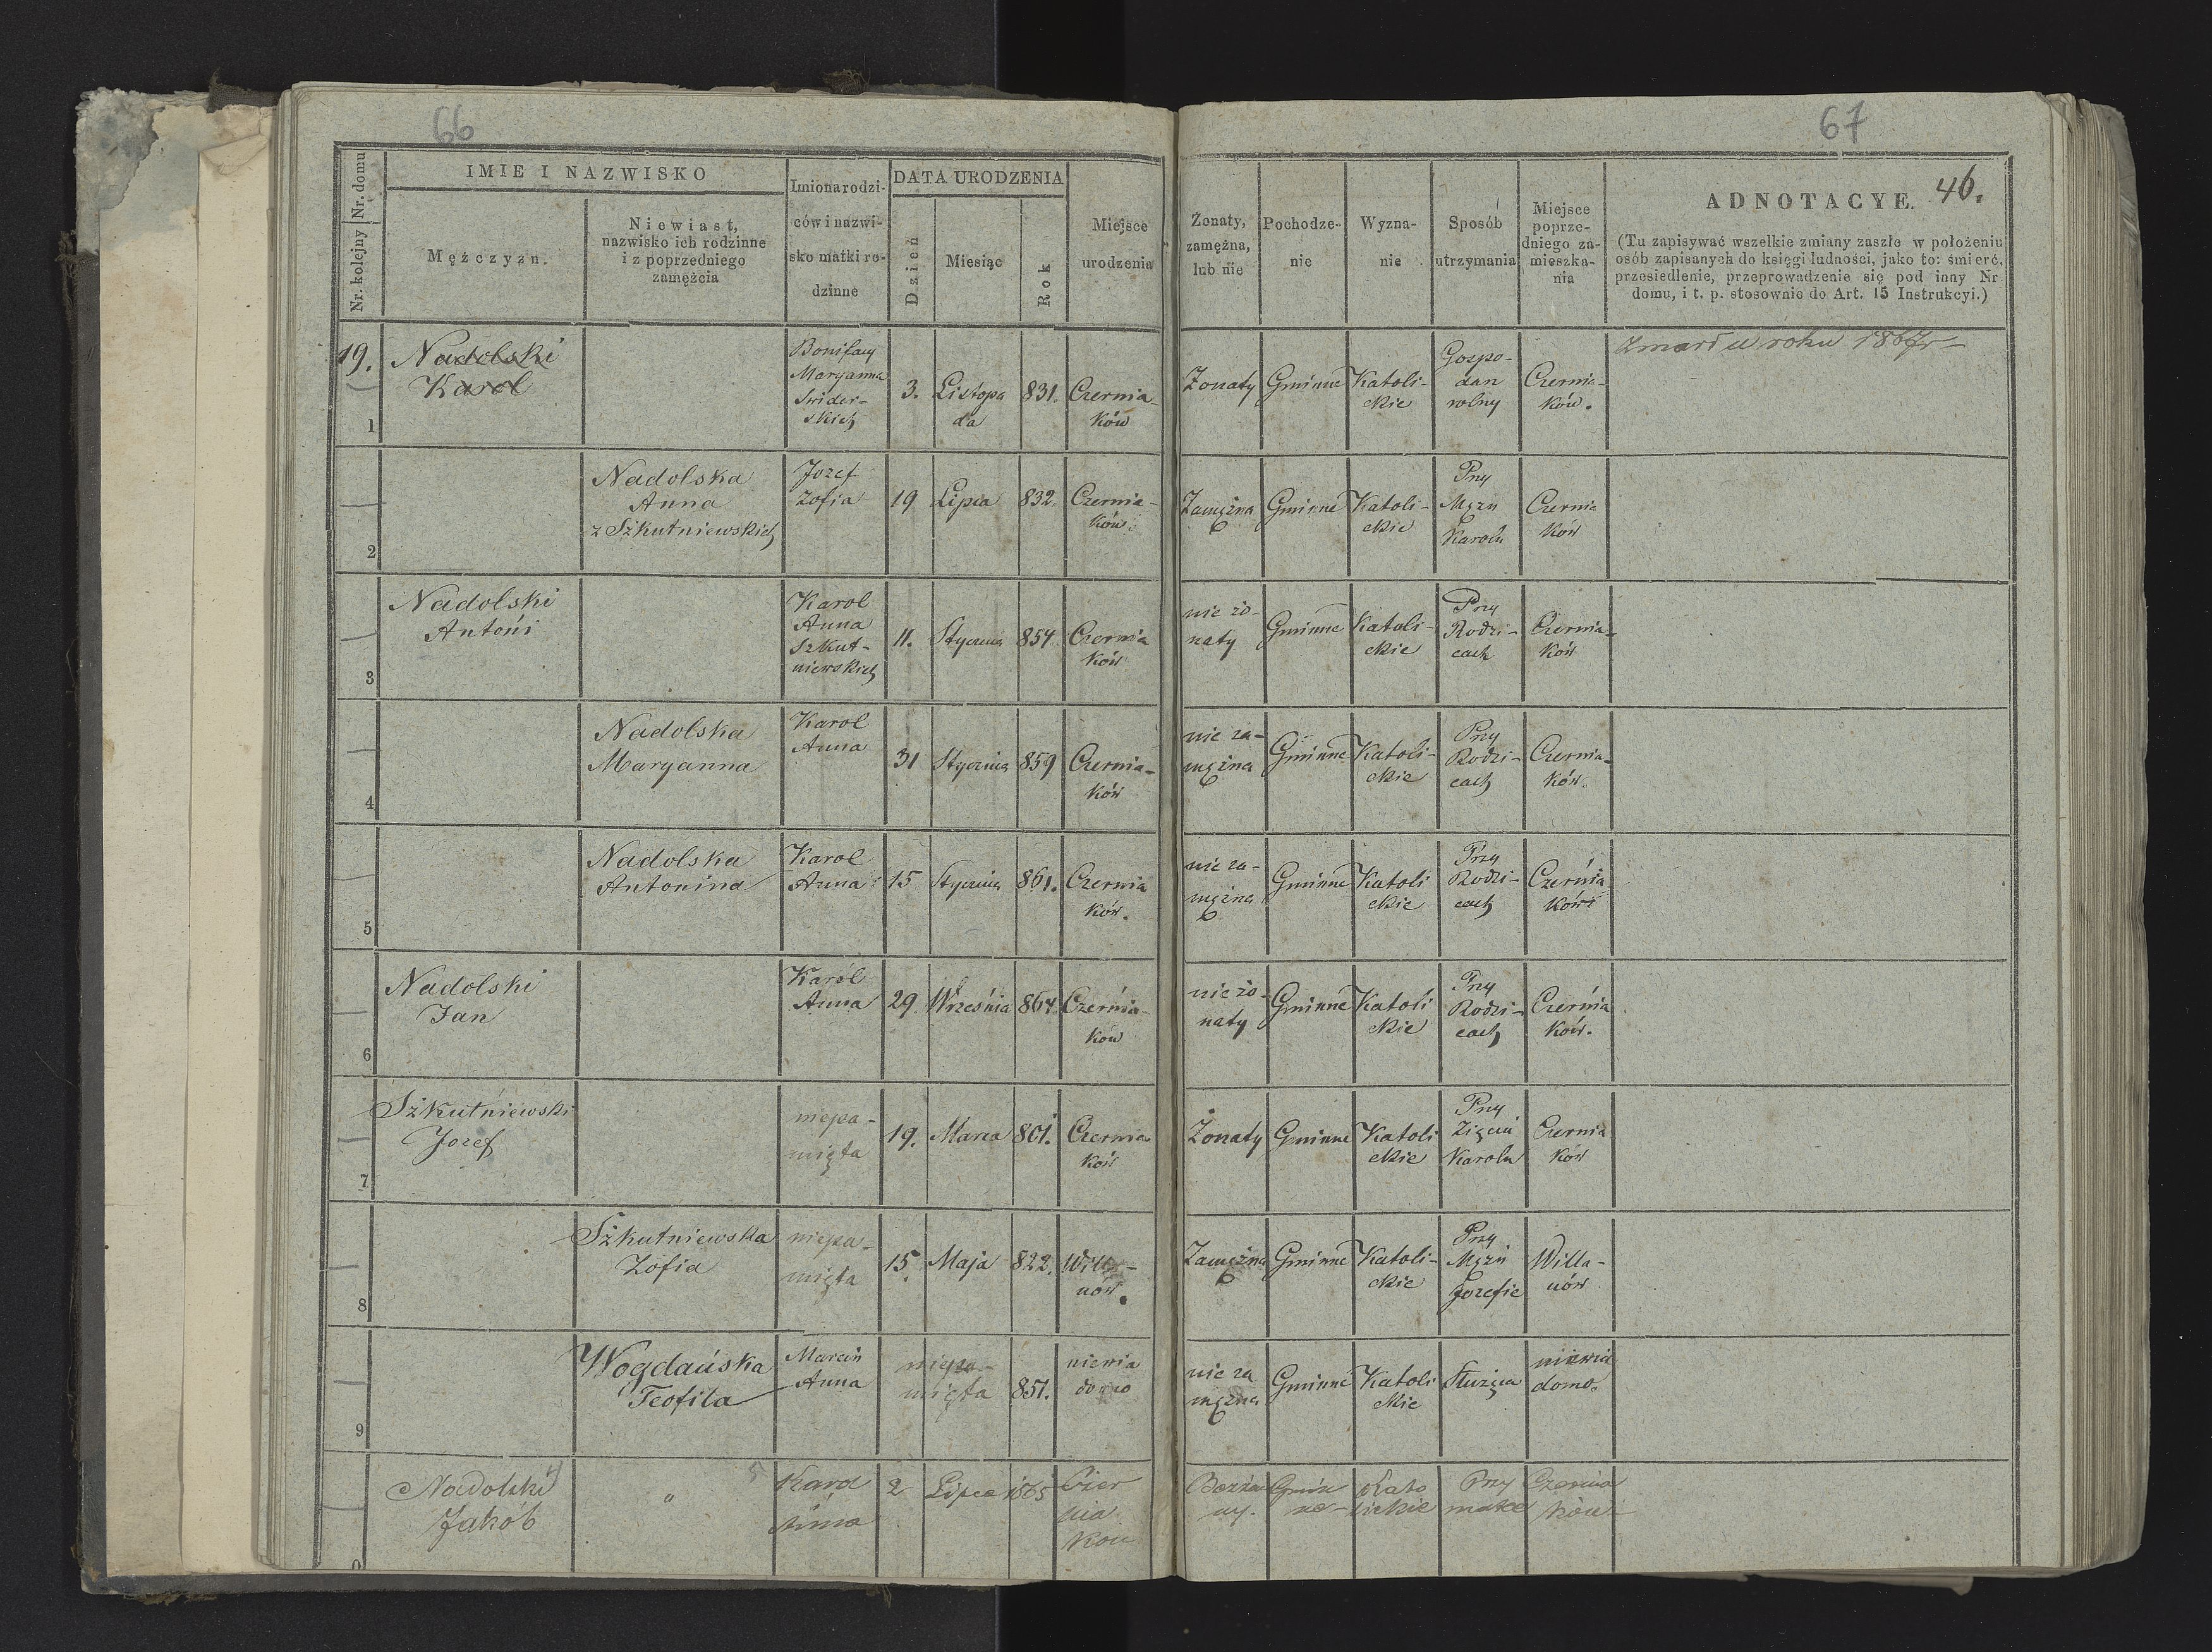 66
67
46.
Nr. domu
Nr. kolejny
IMIE I NAZWISKO
Mężczyzn.
Niewiast,
nazwisko ich rodzinne
i z poprzedniego
zamężcia
Imiona rodzi-
ców i nazwi-
sko matki ro-
dzinne
DATA URODZENIA
Dzień
Miesiąc
Rok
Miejsce
urodzenia
Żonaty,
zamężna,
lub nie
Pochodze-
nie
Wyzna-
nie
Sposób
utrzymania
Miejsce
poprze-
dniego za-
mieszka-
nia
ADNOTACYE.
(Tu zapisywać wszelkie zmiany zaszłe w położeniu
osób zapisanych do księgi ludności, jako to: śmierć,
przesiedlenie, przeprowadzenie się pod inny Nr
domu, i t. p. stosownie do Art. 15 Instrukcyi.)
19.
1
Nadolski
Karol
Bonifacy
Maryanna
Swider-
skich
3.
Listopa
da
831.
Czernia-
ków
Żonaty
Gminne
Katoli-
ckie
Gospo-
darz
rolny
Czernia-
ków.
Zmarł w roku 1867r
2
Nadolska
Anna
z Szkutniewskich
Jozef
Zofia
19
Lipca
832.
Czernia-
ków.
Zamężna
Gminne
Katoli-
ckie
Przy
Mężu
Karolu
Czernia
ków
3
Nadolski
Antoni
Karol
Anna
Szkut-
niewskich
11.
Stycznia
854
Czernia
ków
nie żo-
naty
Gminne
Katoli-
ckie
Przy
Rodzi-
cach
Czernia-
ków
4
Nadolska
Maryanna
Karol
Anna
31
Stycznia
859
Czernia-
ków
nie za-
mężna
Gminne
Katoli-
ckie
Przy
Rodzi-
cach
Czernia-
ków.
5
Nadolska
Antonina
Karol
Anna
15
Stycznia
861.
Czernia
ków.
nie za-
mężna
Gminne
Katoli
ckie
Przy
Rodzi-
cach
Czernia
ków
6
Nadolski
Jan
Karól
Anna
29.
Września
864
Czernia-
ków
nie żo-
naty
Gminne
Katoli
ckie
Przy
Rodzi-
cach
Czernia
ków.
7
Szkutniewski
Jozef
niepa-
mięta
19.
Marca
801.
Czernia
ków
Żonaty
Gminne
Katoli
ckie
Przy
Zięciu
Karolu
Czernia
ków
8
Szkutniewska
Zofia
niepa-
mięta
15.
Maja
822.
Willa-
nów.
Zamężna
Gminne
Katoli-
ckie
Przy
Mężu
Jozefie
Willa-
nów
9
Wogdańska
Teofila
Marcin
Anna
niepa-
mięta
851.
niewia
domo
nie za
mężna
Gminne
Katoli
ckie
Służąca
niewia
domo.
0
Nadolski
Jakób
"
Karol
Anna
2
Lipca
1865
Czer
nia
kow
Gmin
ne
Kato
lickie
Przy
matce
Czernia
ków